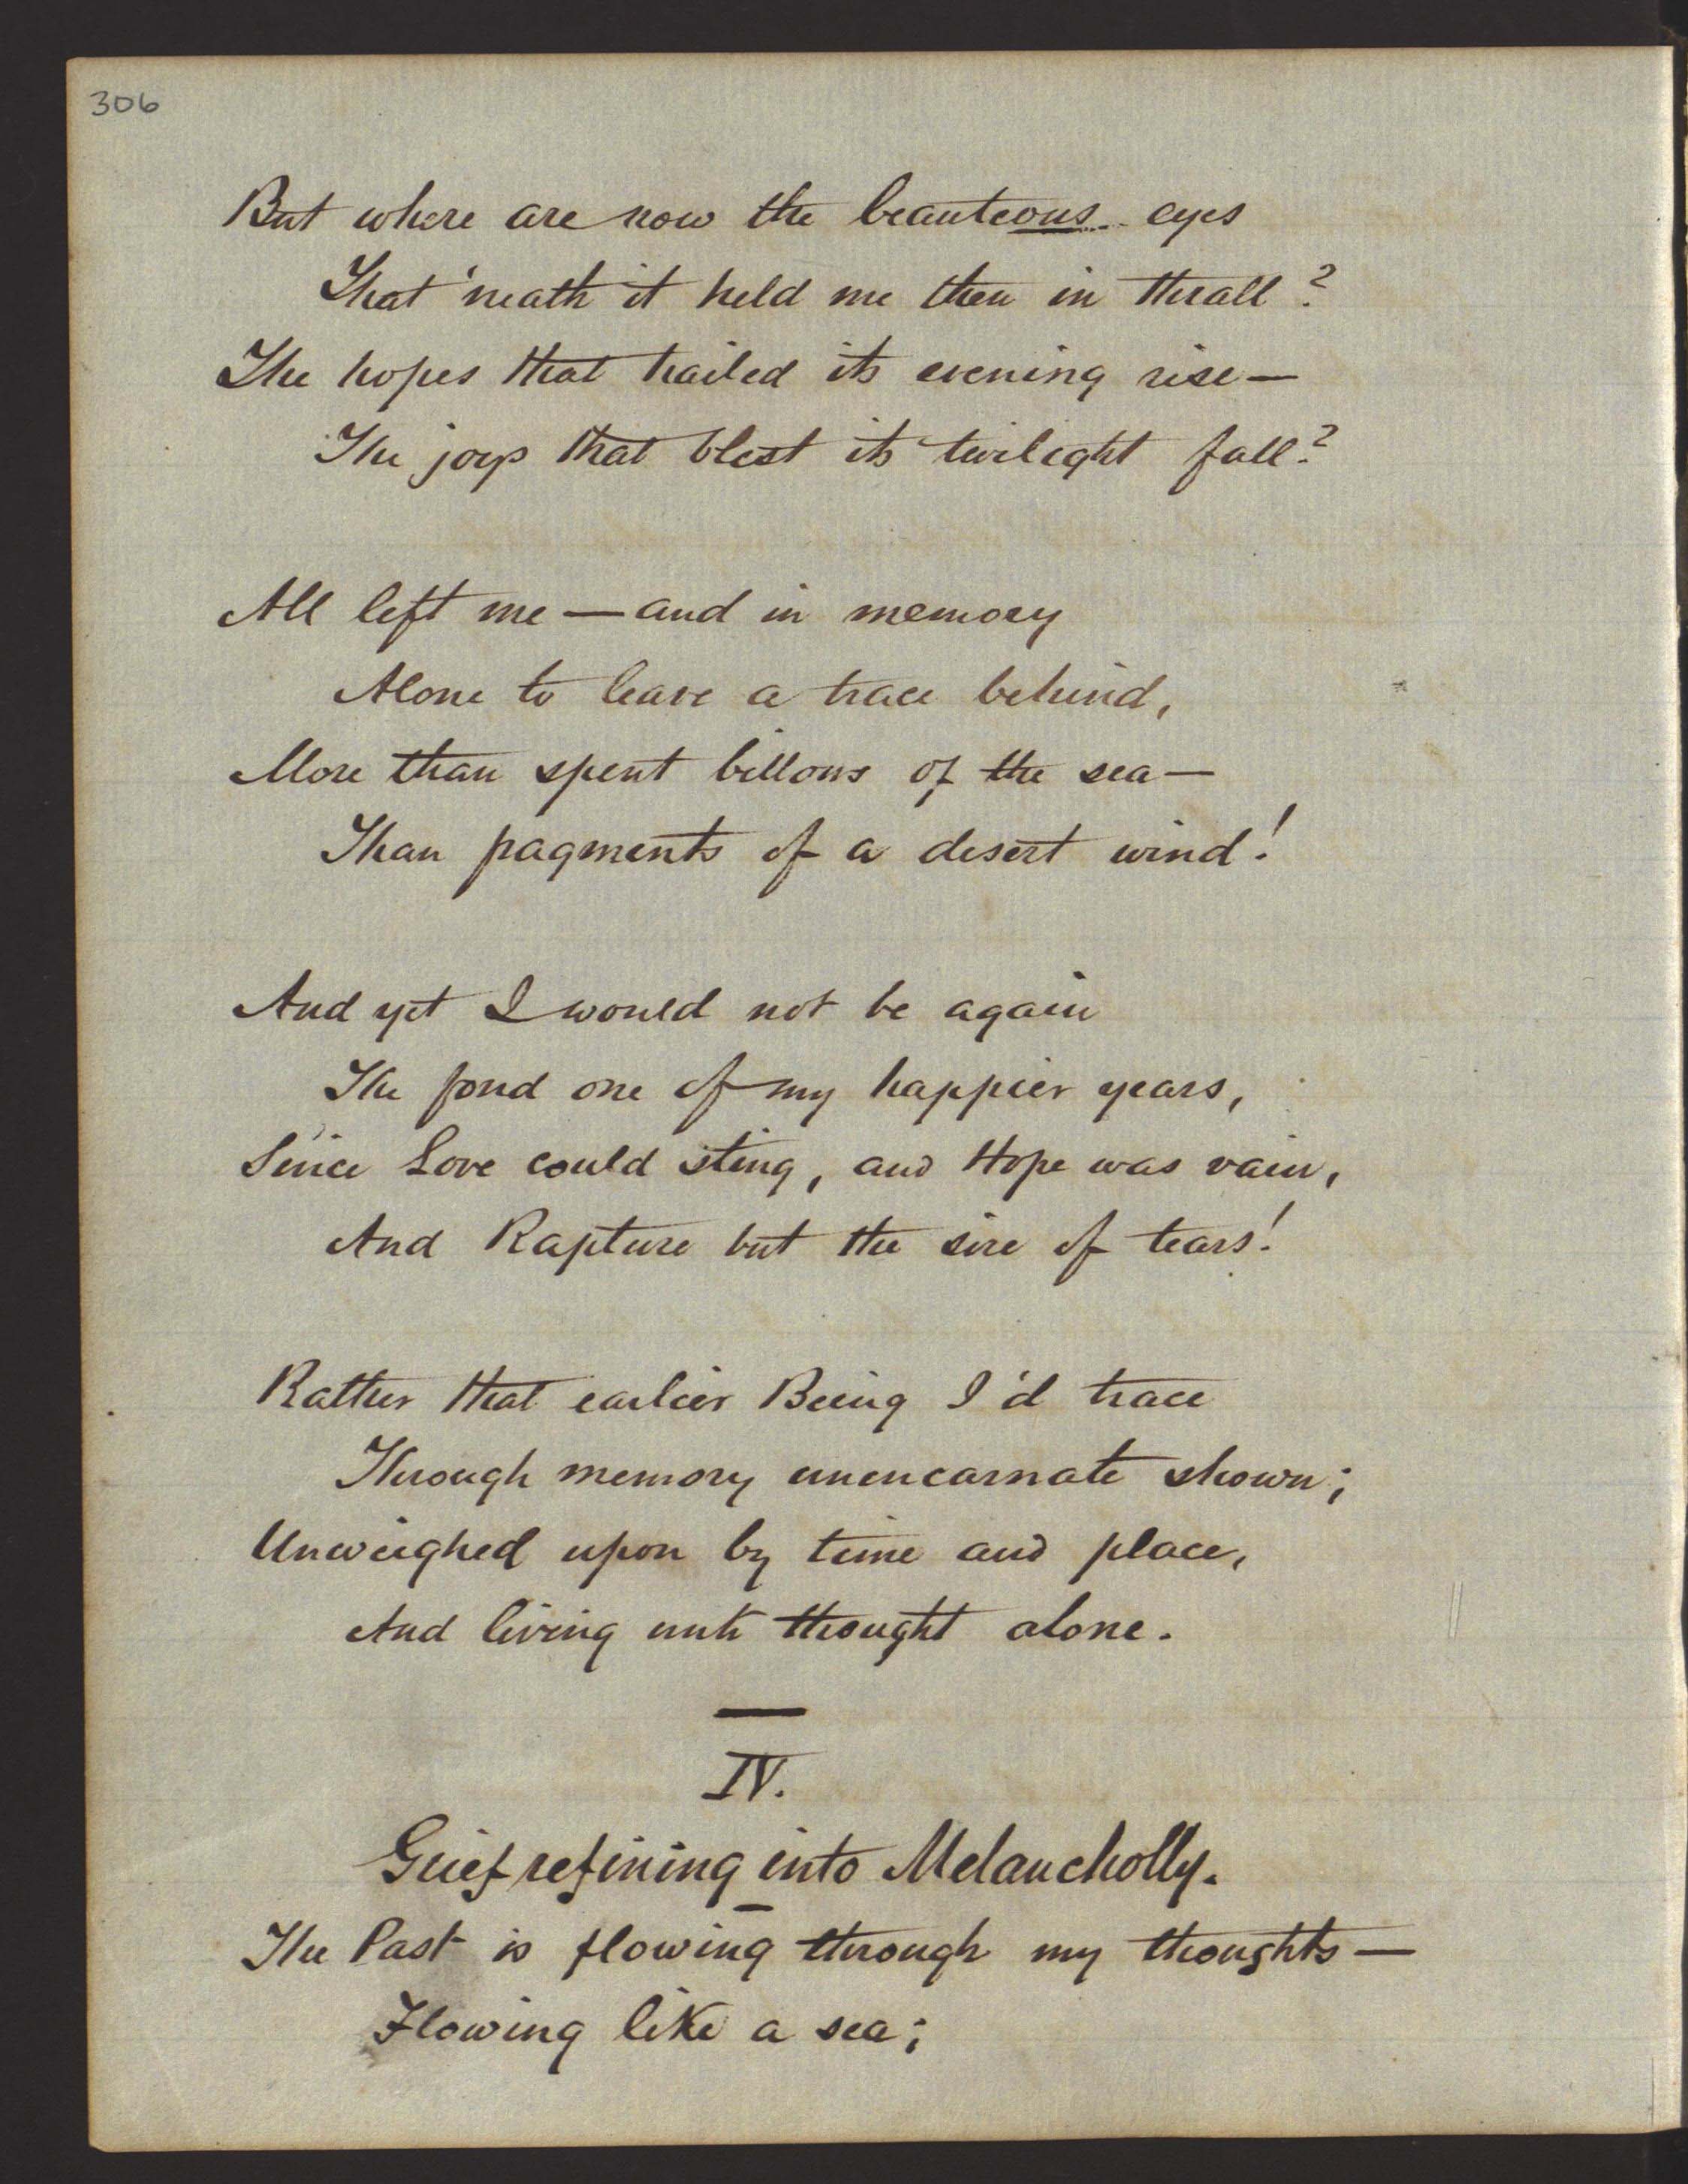 306
But where are now the beauteous eyes
That 'neath it held me then in thrall?
The hopes that hailed its evening rise—
The joys that blest its twilight fall?
All left me — and in memory
Alone to leave a trace behind,
More than spent billows of the sea—
Than pagments of a desert wind!
And yet I would not be again
The fond one of my happier years,
Since Love could sting, and Hope was vain,
And Rapture but the sire of tears!
Rather that earlier Being I'd trace
Through memory unincarnate shown;
Unweighed upon by time and place,
And living with thought alone.
IV.
Grief refining into Melancholly.
The Past is flowing through my thoughts—
Flowing like a sea;